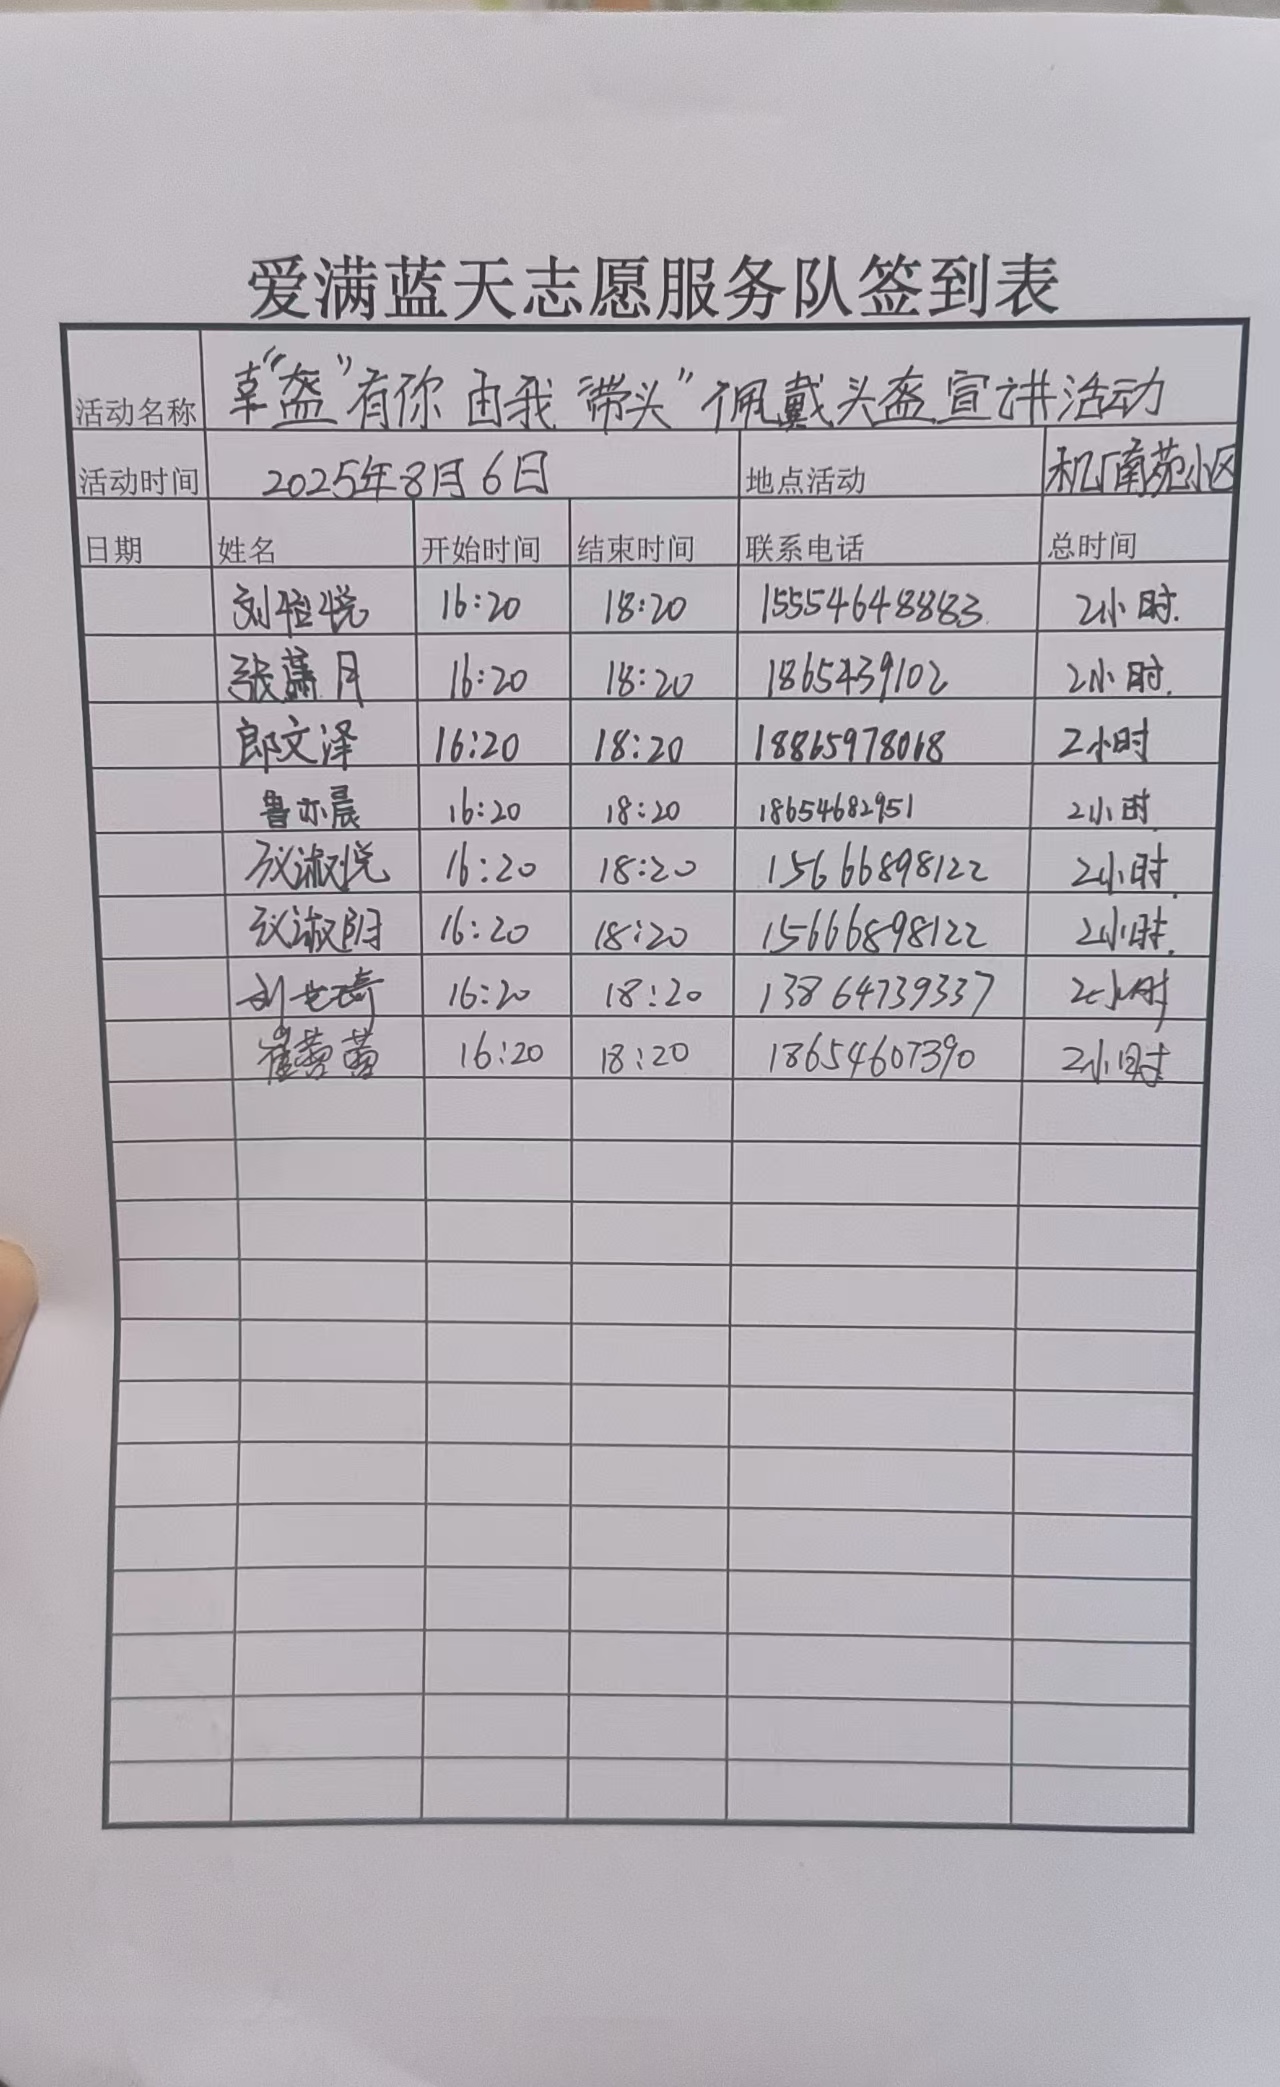 爱满蓝天志愿服务队签到表
活动名称 幸“盔”有你 由我“带头”佩戴头盔宣讲活动
活动时间 2025年8月6日 地点活动 机厂南苑小区
日期 姓名 开始时间 结束时间 联系电话 总时间
刘恺悦 16:20 18:20 15554648883 2小时.
张潇月 16:20 18:20 1865439102 2小时.
郎文泽 16:20 18:20 18865978068 2小时
鲁亦晨 16:20 18:20 18654682951 2小时
淑悦 16:20 18:20 15666898122 2小时.
淑阴 16:20 18:20 15666898122 2小时.
刘 琦 16:20 18:20 13864739337 2小时
崔蕾蕾 16:20 18:20 18654607390 2小时